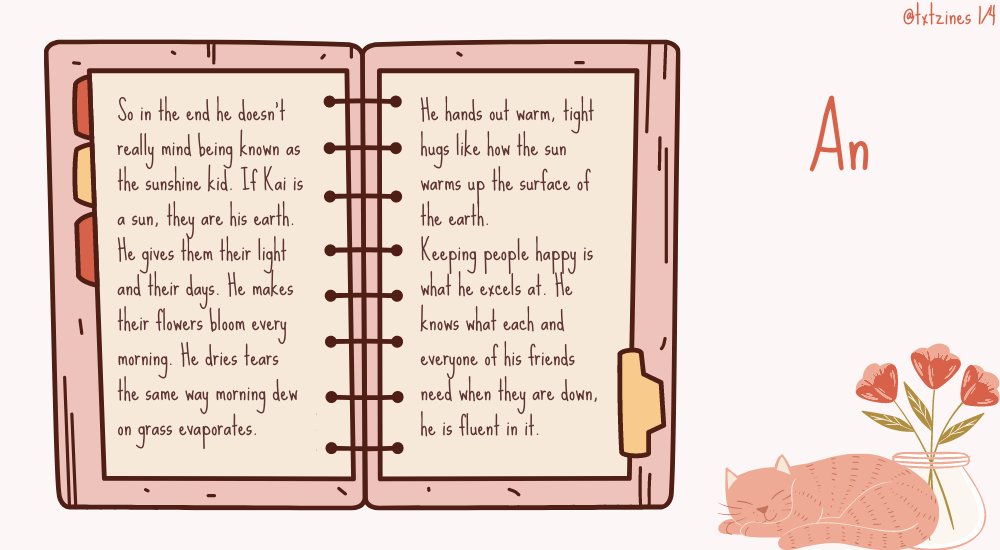 @txtzines 1/4
So in the end he doesn't
really mind being known as
the sunshine kid. If Kai is
a sun, they are his earth.
He gives them their light
and their days. He makes
their flowers bloom every
morning. He dries tears
the same way morning dew
on grass evaporates.
He hands out warm, tight
hugs like how the sun
warms up the surface of
the earth.
Keeping people happy is
what he excels at. He
knows what each and
everyone of his friends
need when they are down,
he is fluent in it.
An